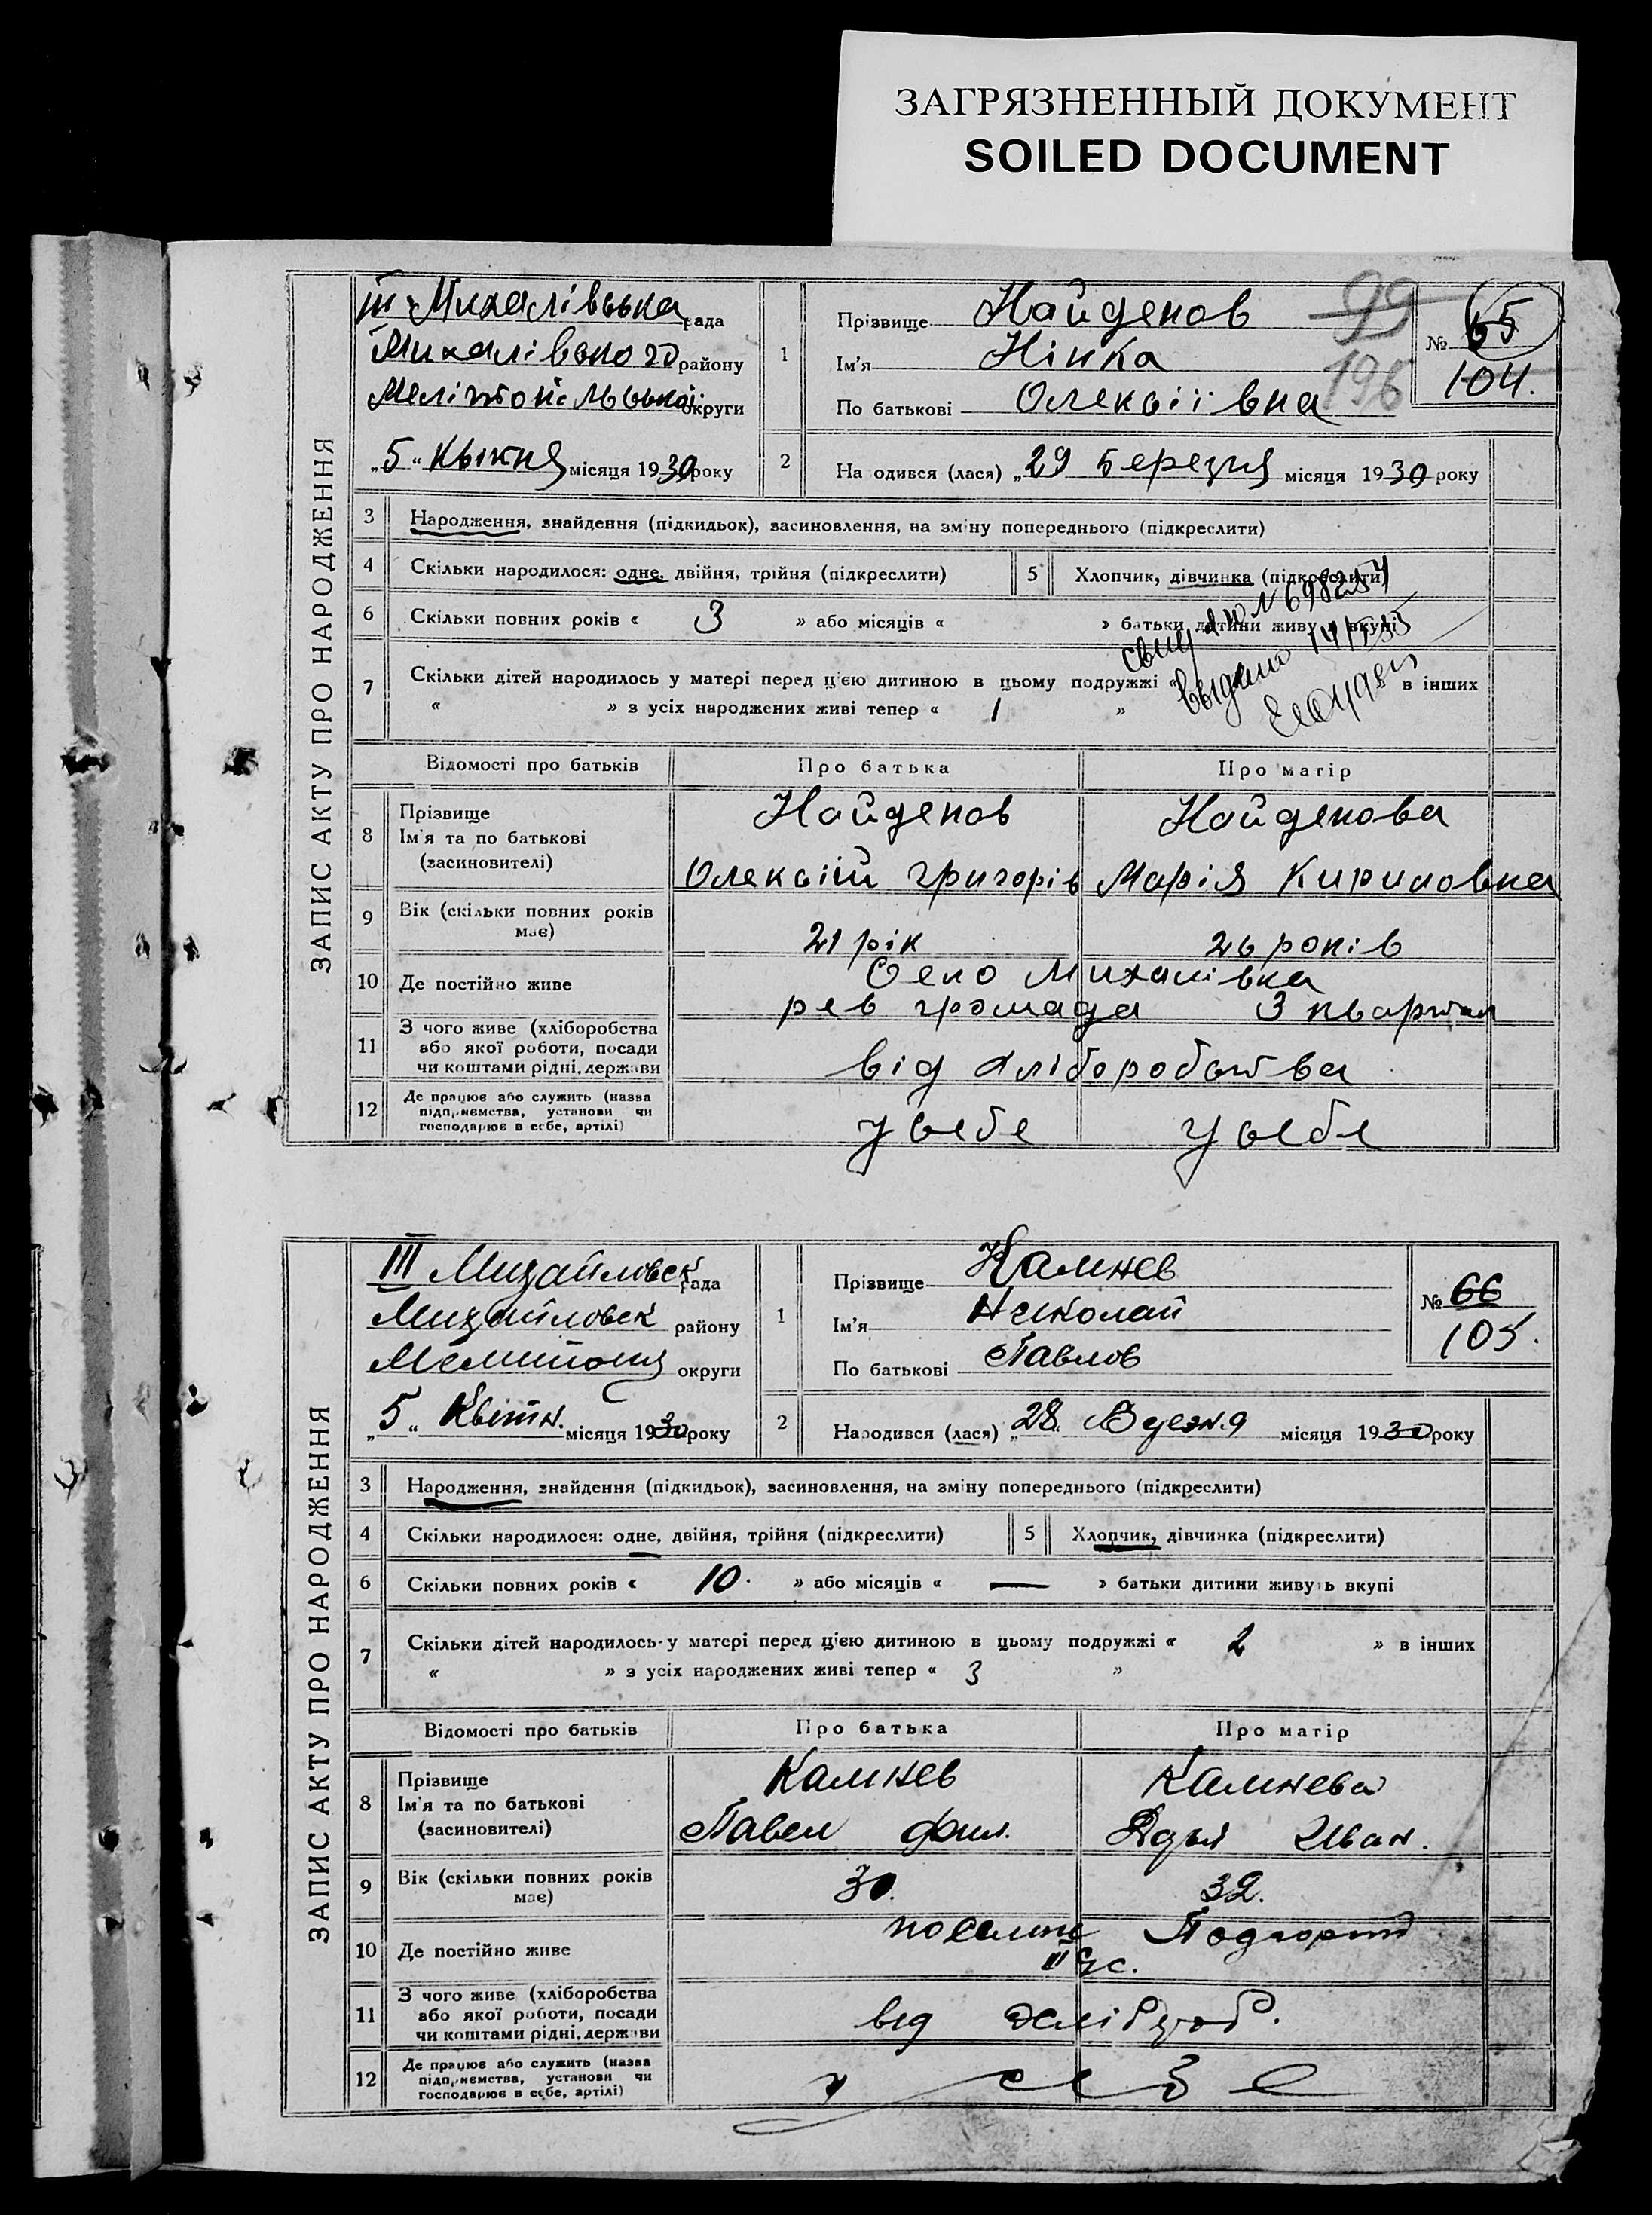 ЗАГРЯЗНЕННЫЙ ДОКУМЕНТ
SOILED DOCUMENT
ЗАПИС АКТУ ПРО НАРОДЖЕННЯ
III Михалівська рада
Михалівського району
Мелітопільської округи
„5“ Квітня місяця 1930 року
1 Прізвище Найденов
Ім'я Нінка
По батькові Олексіівна
99
196
№ 65
104.
2 На одився (лася) „29 Березня місяця 1930 року
3 Народження, знайдення (підкидьок), засиновлення, на зміну попереднього (підкреслити)
4 Скільки народилося: одне, двійня, трійня (підкреслити)
5 Хлопчик, дівчинка (підкреслити)
6 Скільки повних років « 3 » або місяців « » батьки дитини живу ь вкупі
7 Скільки дітей народилось у матері перед цією дитиною в цьому подружжі « » в інших
« » з усіх народжених живі тепер « 1 »
№ 698257
Відомості про батьків Про батька Про матір
8 Прізвище
Ім'я та по батькові
(засиновителі)
Найденов
Олексій Григорів
Найденова
Марія Кириловна
9 Вік (скільки повних років має)
21 рік 26 років
10 Де постійно живе
Село Михалівка
рев громада 3 квартал
11 З чого живе (хліборобства
або якої роботи, посади
чи коштами рідні, держави
від хліборобства
12 Де працює або служить (назва
підприємства, установи чи
господарює в себе, артілі)
у себе у себе
ЗАПИС АКТУ ПРО НАРОДЖЕННЯ
III Михайловск рада
Михайловск району
Мелитоп округи
„5“ Квітн. місяця 1930 року
1 Прізвище Камнев
Ім'я Николай
По батькові Павлов
№ 66
105.
2 Народився (лася) „28“ місяця 1930 року
3 Народження, знайдення (підкидьок), засиновлення, на зміну попереднього (підкреслити)
4 Скільки народилося: одне, двійня, трійня (підкреслити)
5 Хлопчик, дівчинка (підкреслити)
6 Скільки повних років « 10. » або місяців « — » батьки дитини живу ь вкупі
7 Скільки дітей народилось у матері перед цією дитиною в цьому подружжі « 2 » в інших
« » з усіх народжених живі тепер « 3 »
Відомості про батьків Про батька Про матір
8 Прізвище
Ім'я та по батькові
(засиновителі)
Камнев
Павел Фил.
Камнева
Иван.
9 Вік (скільки повних років має)
30. 32.
10 Де постійно живе
III
11 З чого живе (хліборобства
або якої роботи, посади
чи коштами рідні, держави
від хлібороб.
12 Де працює або служить (назва
підприємства, установи чи
господарює в себе, артілі)
у себе